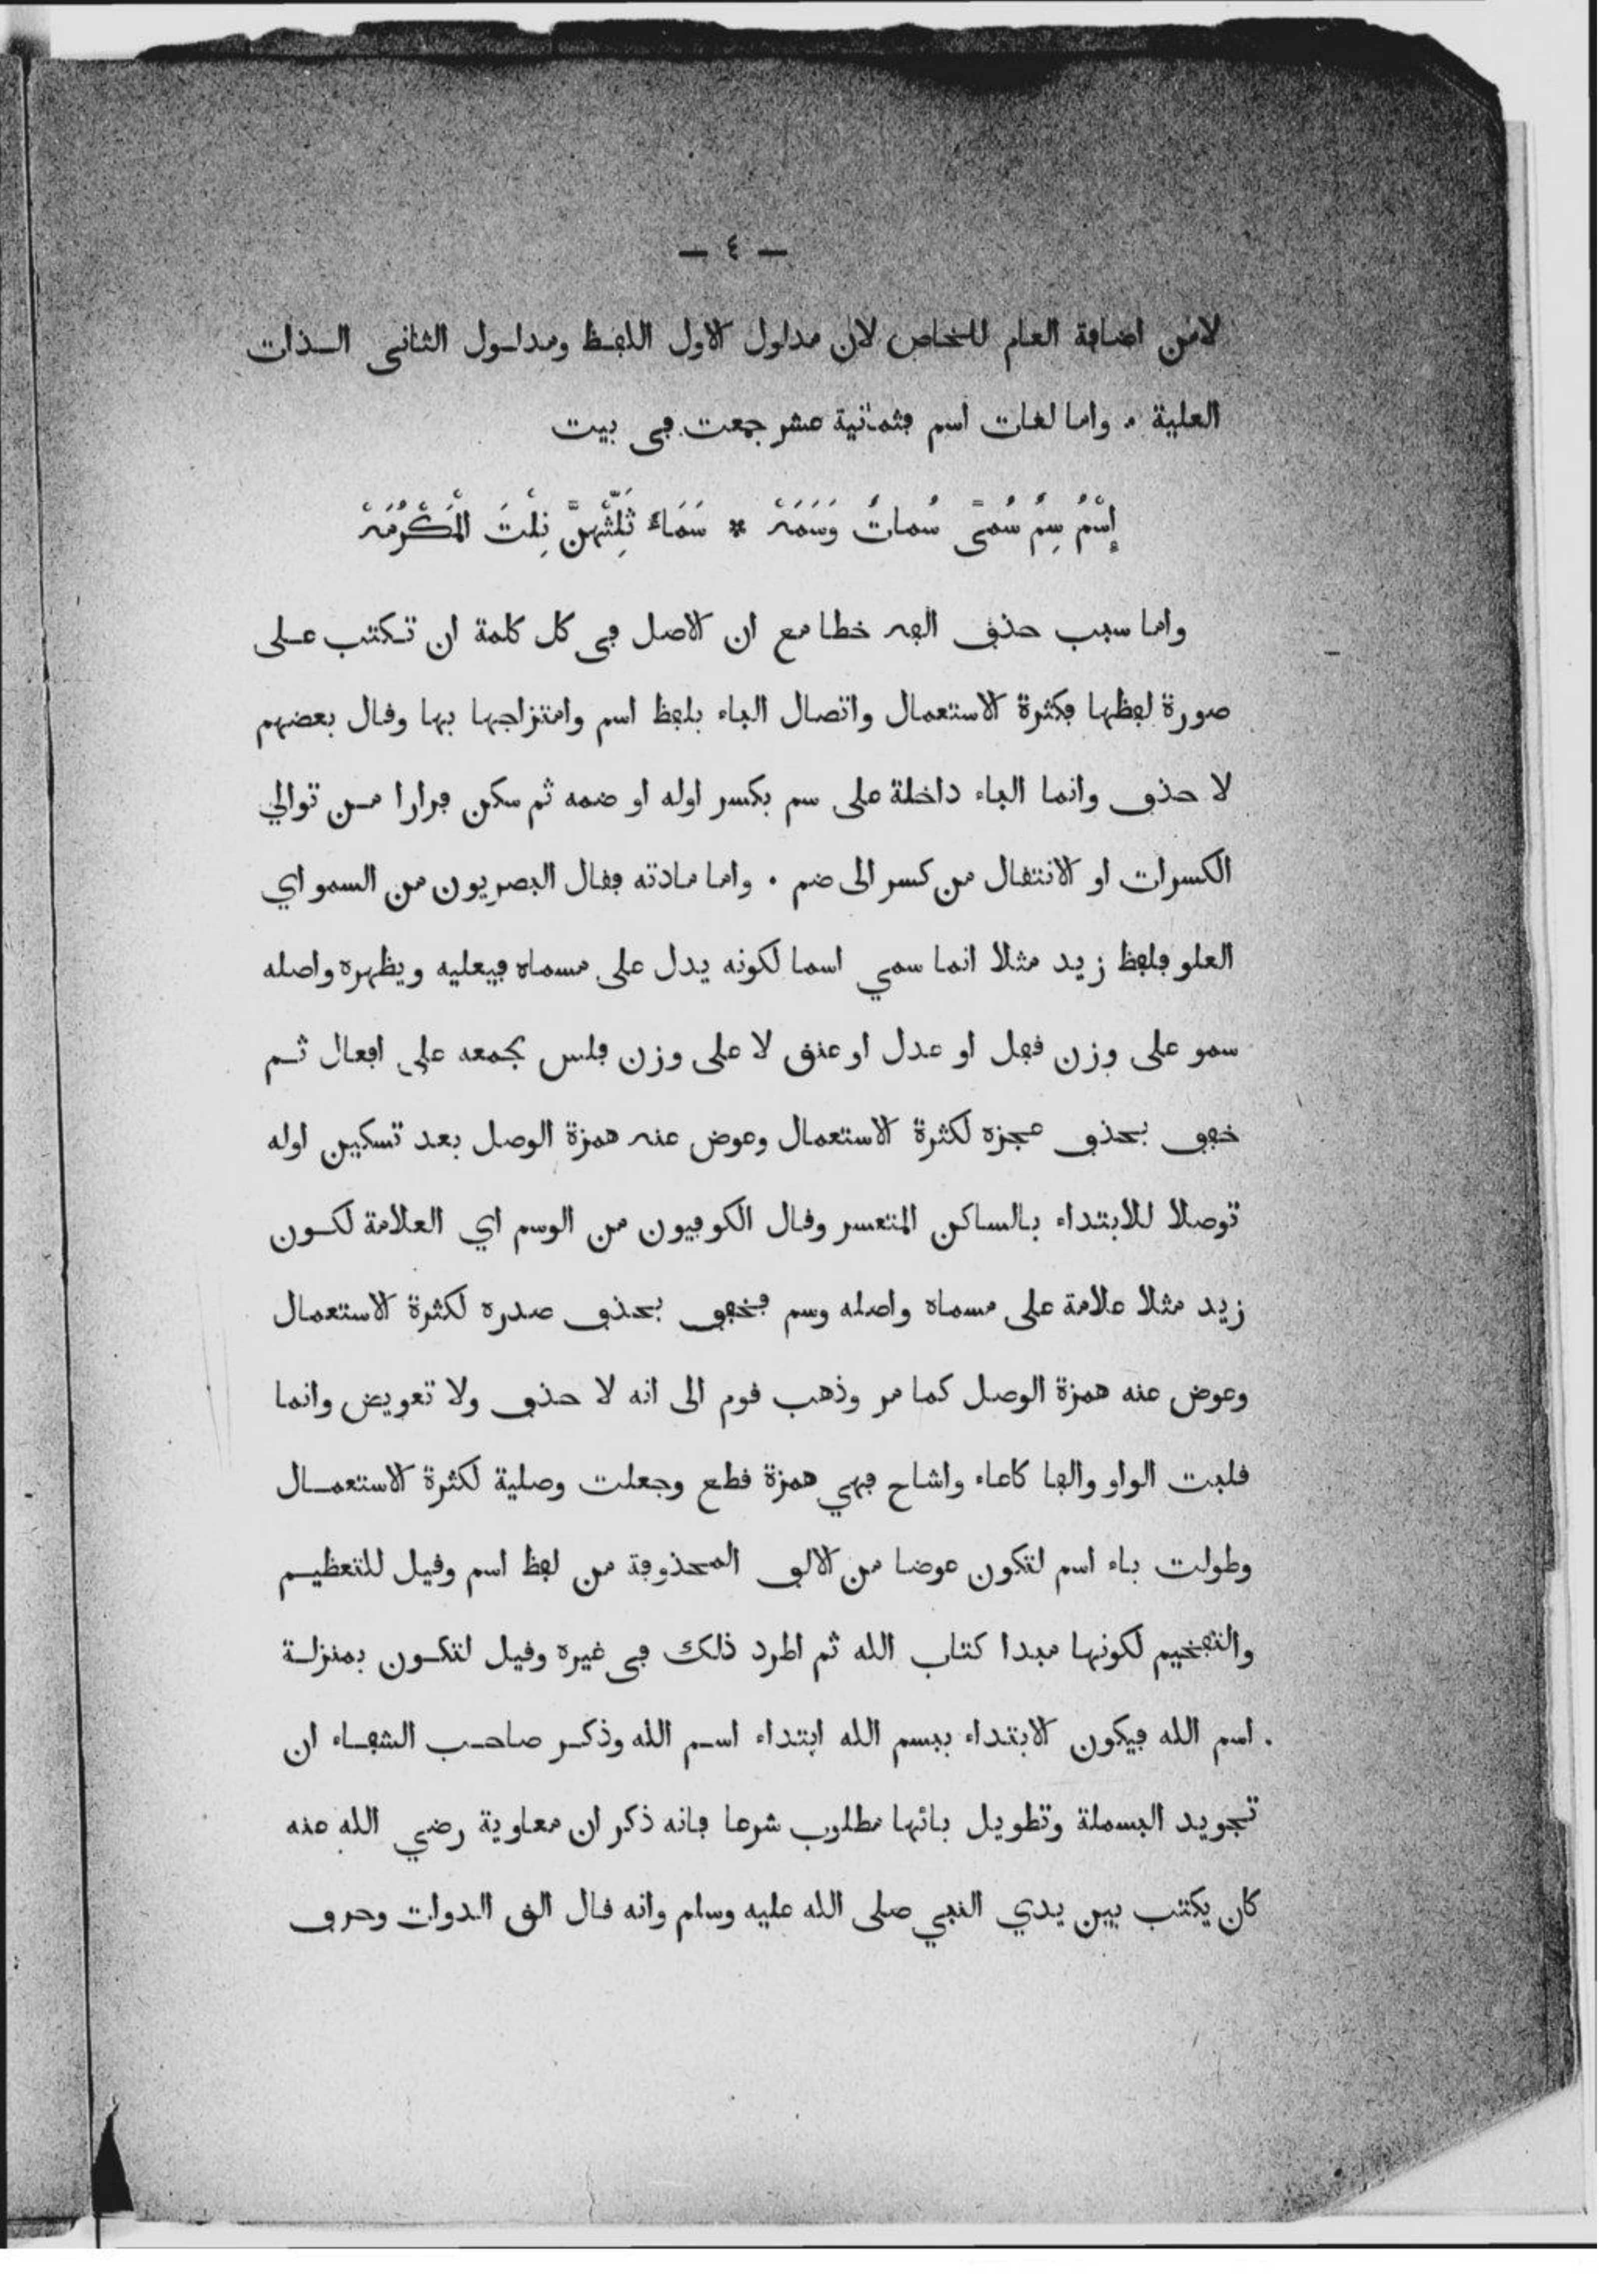 — ٤ —
لامن اضافة العام للخاص لان مدلول الاول اللفظ ومدلول الثانى الذات
العلية . واما لغات اسم فثمانية عشر جمعت فى بيت
إِسْمُ سِمُ سُمىً سُماتُ وَسَمَهْ * سَمَاءُ ثَلِّثْهُنَّ نِلْتَ الْمَكْرُمَهْ
واما سبب حذف الفه خطا مع ان الاصل فى كل كلمة ان تكتب على
صورة لفظها فكثرة الاستعمال واتصال الباء بلفظ اسم وامتزاجها بها وقال بعضهم
لا حذف وانما الباء داخلة على سم بكسر اوله او ضمه ثم سكن فرارا من توالي
الكسرات او الانتقال من كسر الى ضم . واما مادته فقال البصريون من السمو اي
العلو فلفظ زيد مثلا انما سمي اسما لكونه يدل على مسماه فيعليه ويظهره واصله
سمو على وزن قفل او عدل او عنق لا على وزن فلس بجمعه على افعال ثم
خفف بحذف عجزه لكثرة الاستعمال وعوض عنه همزة الوصل بعد تسكين اوله
توصلا للابتداء بالساكن المتعسر وقال الكوفيون من الوسم اي العلامة لكون
زيد مثلا علامة على مسماه واصله وسم فخفف بحذف صدره لكثرة الاستعمال
وعوض عنه همزة الوصل كما مر وذهب قوم الى انه لا حذف ولا تعويض وانما
قلبت الواو والفا كاعاء واشاح فهي همزة قطع وجعلت وصلية لكثرة الاستعمال
وطولت باء اسم لتكون عوضا من الالف المحذوفة من لفظ اسم وقيل للتعظيم
والتفخيم لكونها مبدا كتاب الله ثم اطرد ذلك فى غيره وقيل لتكون بمنزلة
اسم الله فيكون الابتداء ببسم الله ابتداء اسم الله وذكر صاحب الشفاء ان
تجويد البسملة وتطويل بائها مطلوب شرعا فانه ذكر ان معاوية رضي الله عنه
كان يكتب بين يدي النبي صلى الله عليه وسلم وانه قال الق الدوات وحرف